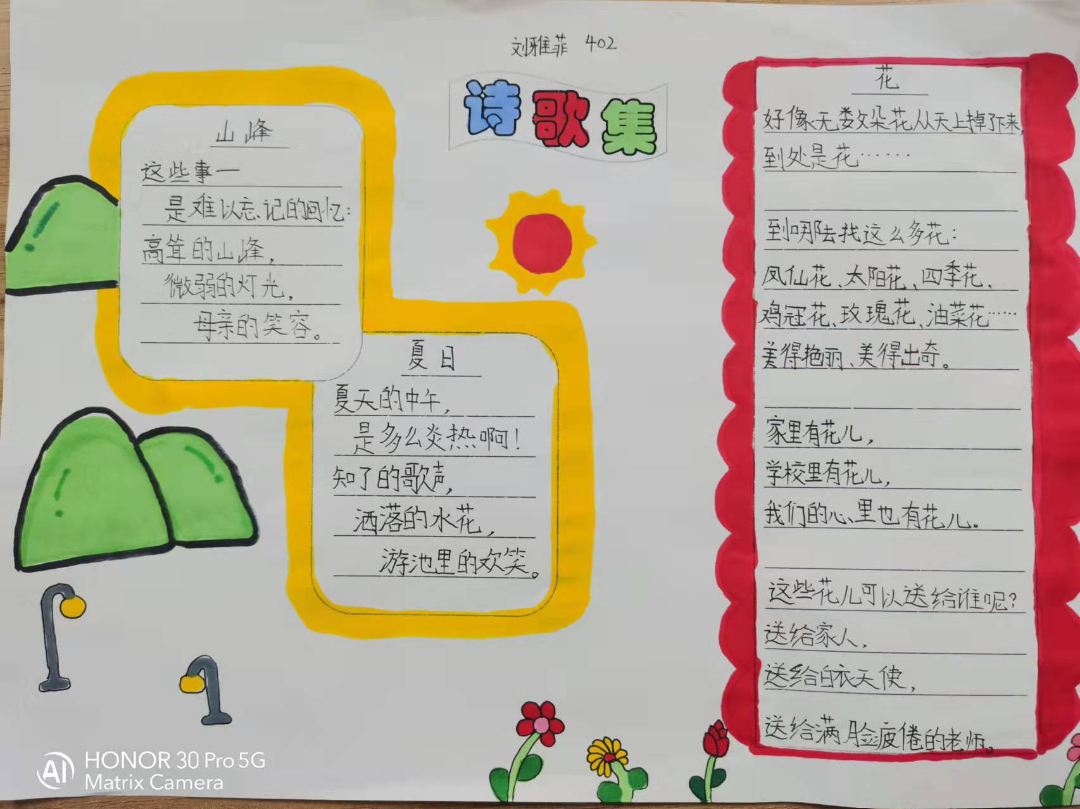 刘雅菲 402
诗歌集
山峰
这些事一
是难以忘记的回忆:
高耸的山峰,
微弱的灯光,
母亲的笑容。
夏日
夏天的中午,
是多么炎热啊!
知了的歌声,
洒落的水花,
游池里的欢笑。
花
好像无数朵花从天上掉下来,
到处是花……
到哪去找这么多花:
凤仙花、太阳花、四季花、
鸡冠花、玫瑰花、油菜花……
美得艳丽、美得出奇。
家里有花儿,
学校里有花儿,
我们的心里也有花儿。
这些花儿可以送给谁呢?
送给家人,
送给白衣天使,
送给满脸疲倦的老师。
AI HONOR 30 Pro 5G
Matrix Camera